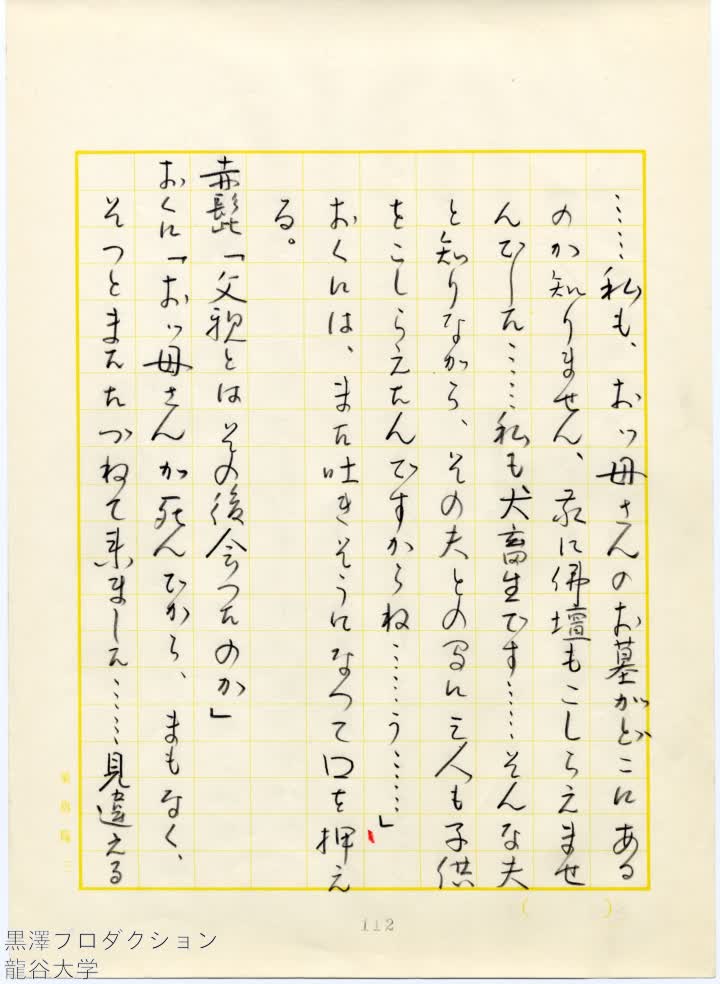 ……私も、おッ母さんのお墓がどこにある
のか知りません、家に佛壇もこしらえませ
んでした……私も犬畜生です……そんな夫
と知りながら、その夫との間に三人も子供
をこしらえたんですからね……う……」
おくには、また吐きそうになつて口を押え
る。
赤髭「父親とはその後会つたのか」
おくに「おッ母さんが死んでから、まもなく、
そつとまたたづねて来ました……見違える
112
黒澤プロダクション
龍谷大学